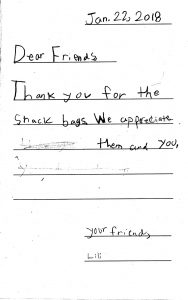 Jan. 22, 2018
Dear Friends
Thank you for the
snack bags. We appreciate
them and you,
your friend,
Lili